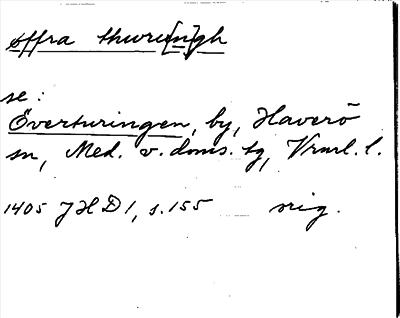 offra thure[n]gh
se:
Överturingen, by, Haverö
sn, Med. v. doms. tg, Vrnrl. l.
1405 JHD 1, s. 155 orig.